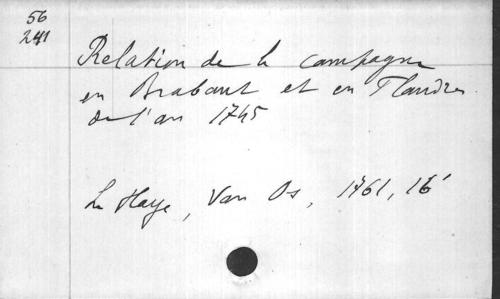 56
241
Relation de la campagne
en Brabant et en Flandres
de l'an 1745
La Haye, Van Os, 1761, 16°